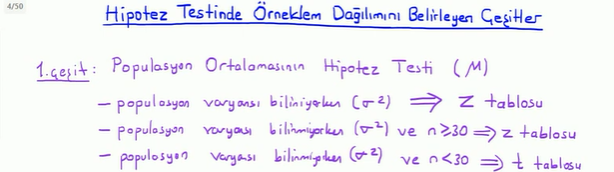 4/50
Hipotez Testinde Örneklem Dağılımını Belirleyen Çeşitler
1.çeşit: Populasyon Ortalamasının Hipotez Testi (M)
– populasyon varyansı biliniyorken (σ²) ⇒ Z tablosu
– populasyon varyası bilinmiyorken (σ²) ve n≥30 ⇒ z tablosu
– populasyon varyası bilinmiyorken (σ²) ve n<30 ⇒ t tablosu